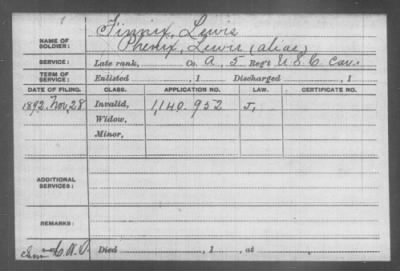 NAME OF SOLDIER: Finnix, Lewis
Phenix, Lewis (alias)
SERVICE: Late rank, Co. A, 5 Reg't U.S.C. Cav.
TERM OF SERVICE: Enlisted , 1 Discharged , 1
DATE OF FILING. CLASS. APPLICATION NO. LAW. CERTIFICATE NO.
1892. Nov. 28 Invalid, 1,140.952 J.
Widow,
Minor,
ADDITIONAL SERVICES:
REMARKS:
Died , 1 , at